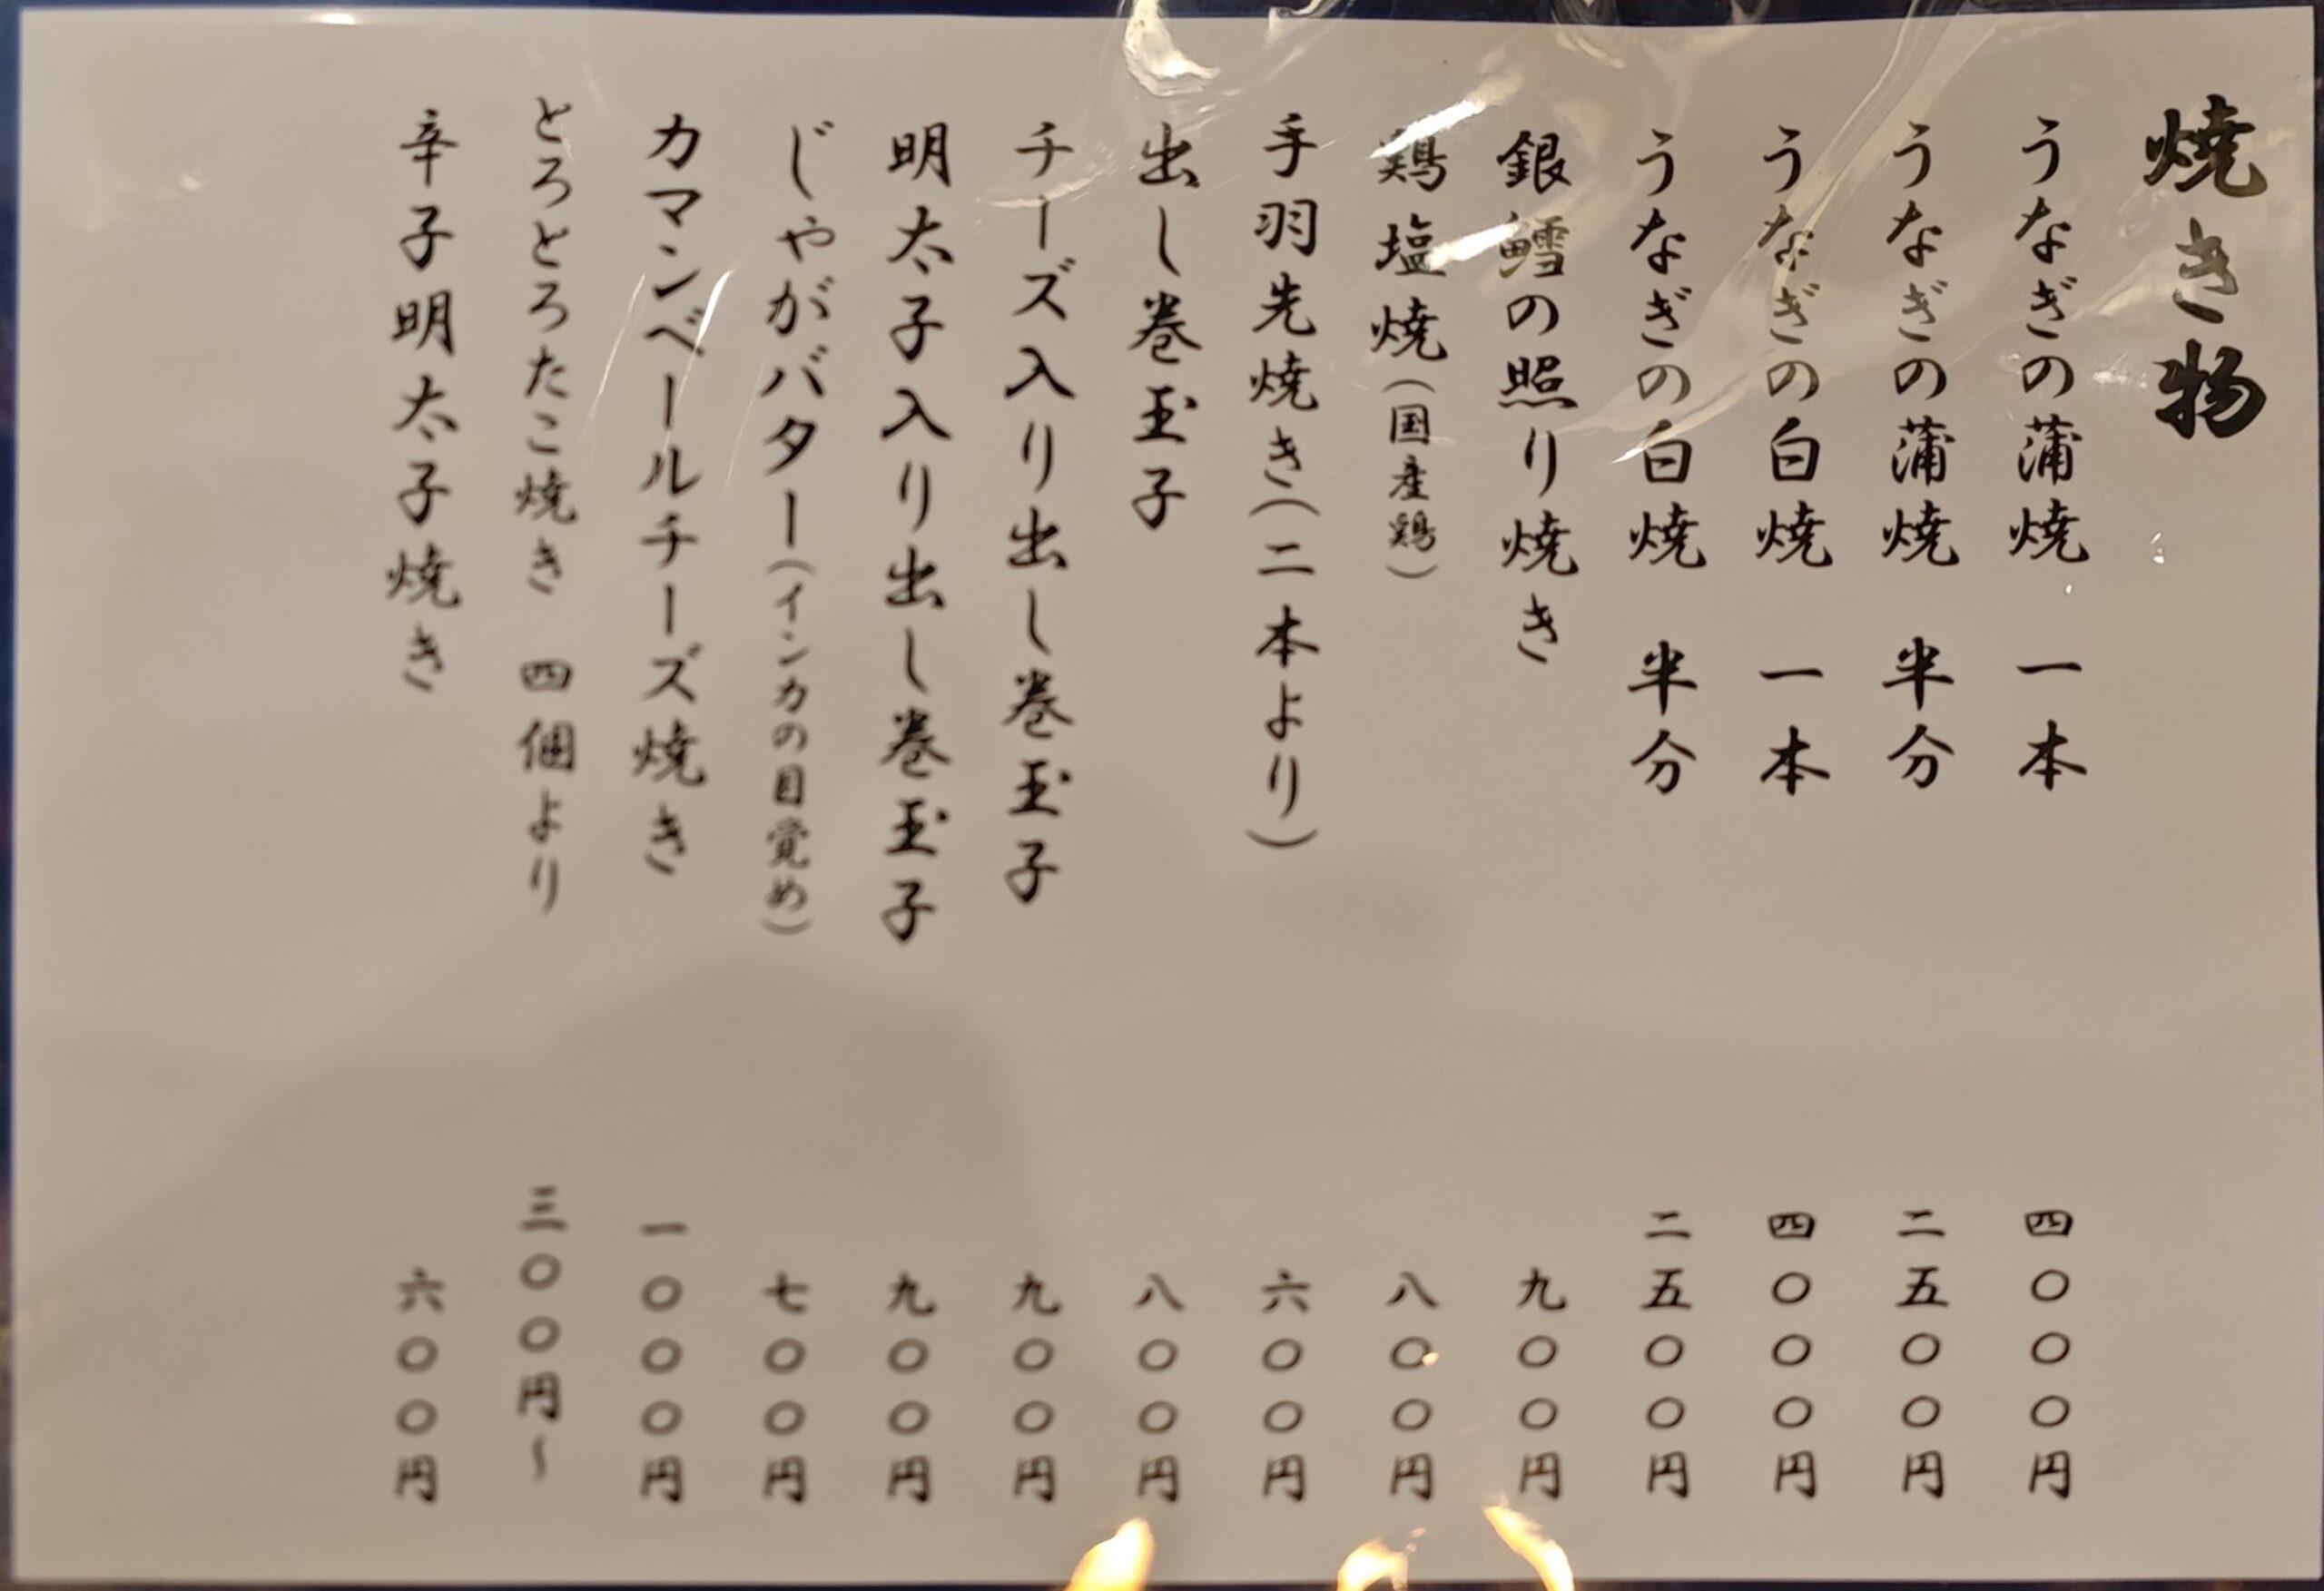 焼き物
うなぎの蒲焼 一本 四〇〇〇円
うなぎの蒲焼 半分 二五〇〇円
うなぎの白焼 一本 四〇〇〇円
うなぎの白焼 半分 二五〇〇円
銀鱈の照り焼き 九〇〇円
鶏塩焼(国産鶏) 八〇〇円
手羽先焼き(二本より) 六〇〇円
出し巻玉子 八〇〇円
チーズ入り出し巻玉子 九〇〇円
明太子入り出し巻玉子 九〇〇円
じゃがバター(インカの目覚め) 七〇〇円
カマンベールチーズ焼き 一〇〇〇円
とろとろたこ焼き 四個より 三〇〇円~
辛子明太子焼き 六〇〇円